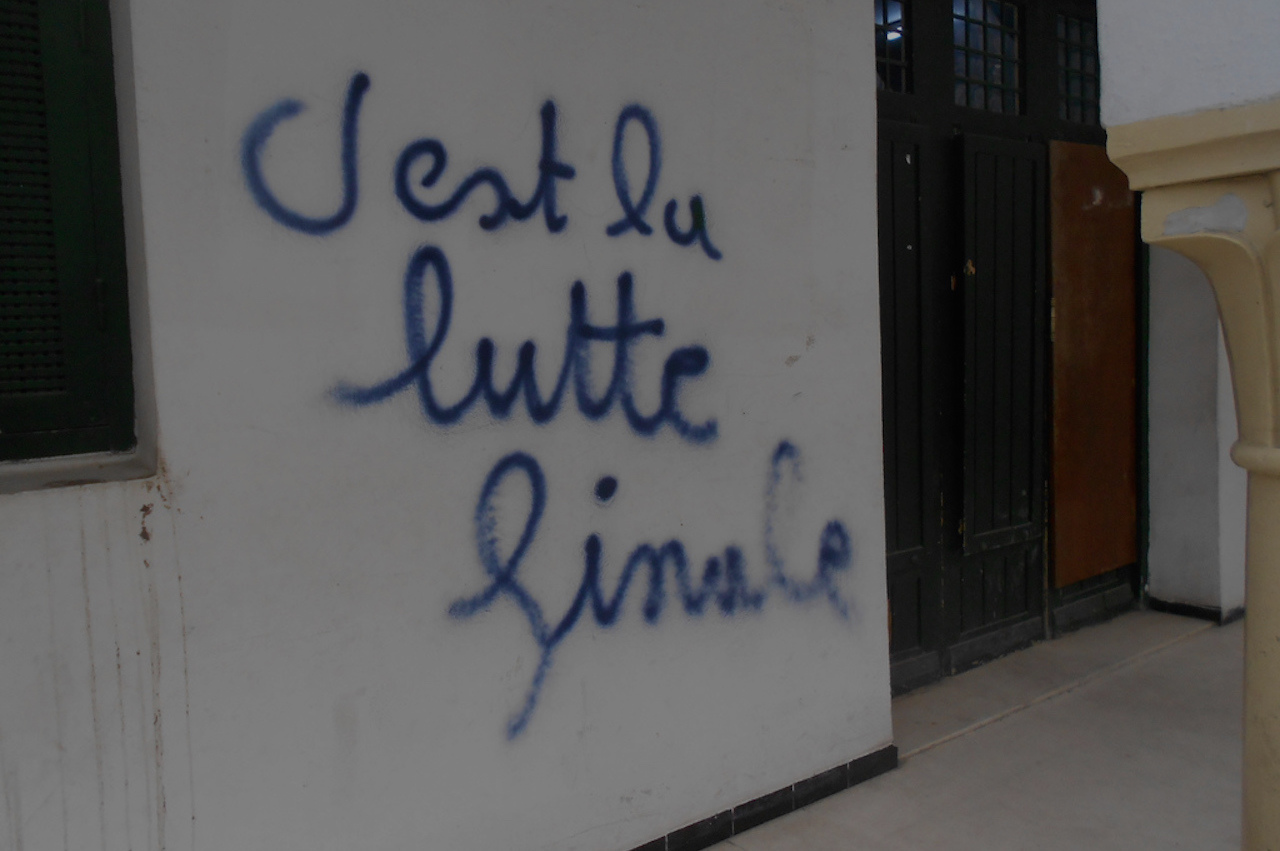 C'est la
lutte
finale